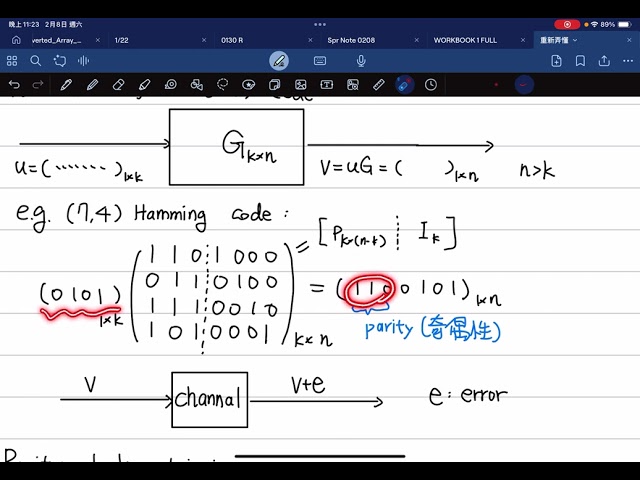 晚上11:23 2月8日 週六
89%
verted_Array_...
1/22
0130 R
Spr Note 0208
WORKBOOK 1 FULL
重新弄懂
code
G k×n
u=(·······)1×k
V=uG=( )1×n
n>k
e.g. (7,4) Hamming code:
= [P k×(n-k) ┊ I k]
(0101)1×k
1 1 0 1 0 0 0
0 1 1 0 1 0 0
1 1 1 0 0 1 0
1 0 1 0 0 0 1
k×n
= (1 1 0 0 1 0 1)1×n
parity (奇偶性)
V
channal
V+e
e: error